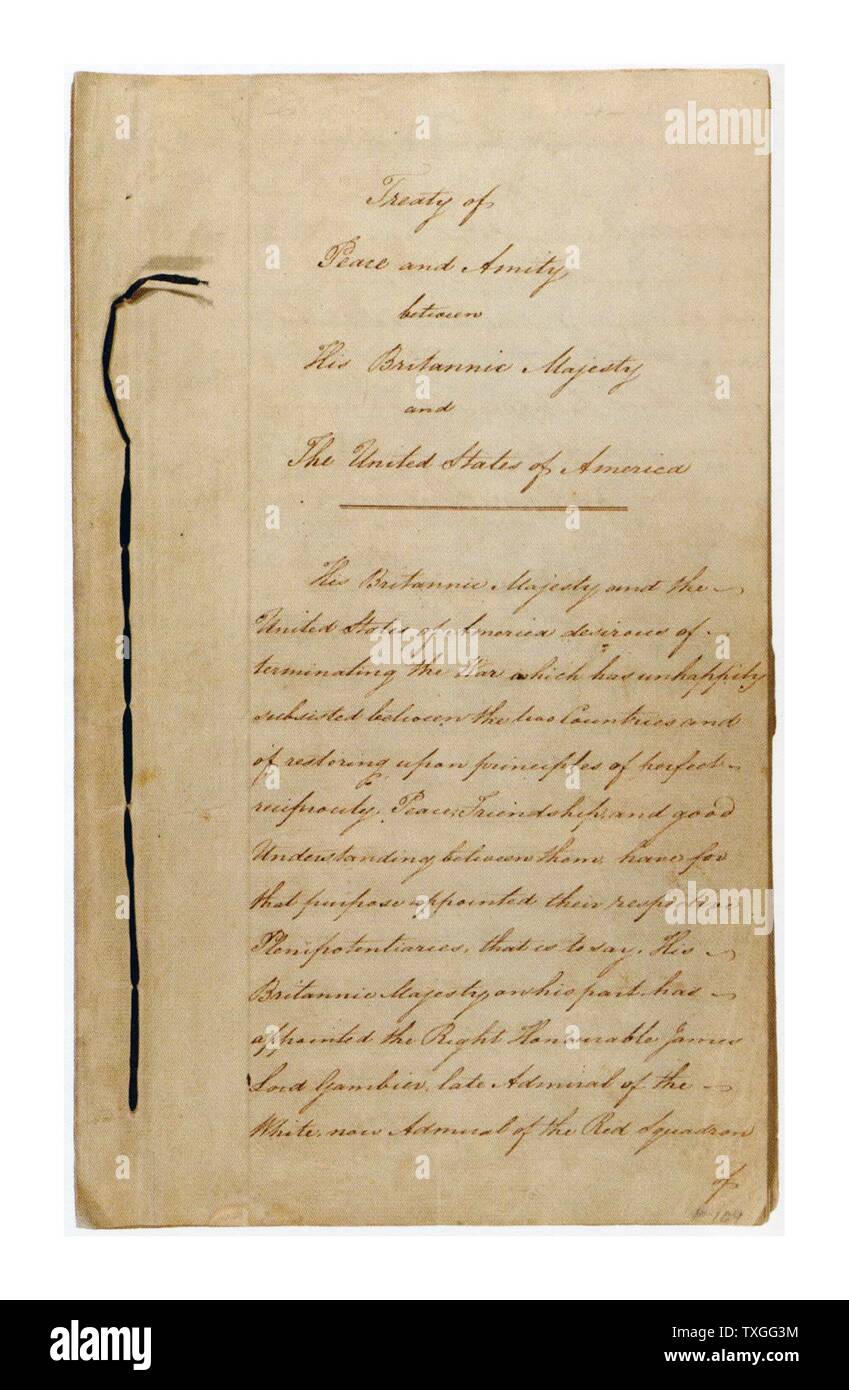 Treaty of
Peace and Amity
between
His Britannic Majesty
and
The United States of America
His Britannic Majesty and the
United States of America desirous of
terminating the War which has unhappily
subsisted between the two Countries and
of restoring upon principles of perfect
reciprocity, Peace, Friendship, and good
Understanding between them, have for
that purpose appointed their respective
Plenipotentiaries, that is to say, His
Britannic Majesty on his part has
appointed the Right Honourable James
Lord Gambier, late Admiral of the
White, now Admiral of the Red Squadron
of
alamy
alamy
alamy
alamy
Image ID: TXGG3M
www.alamy.com